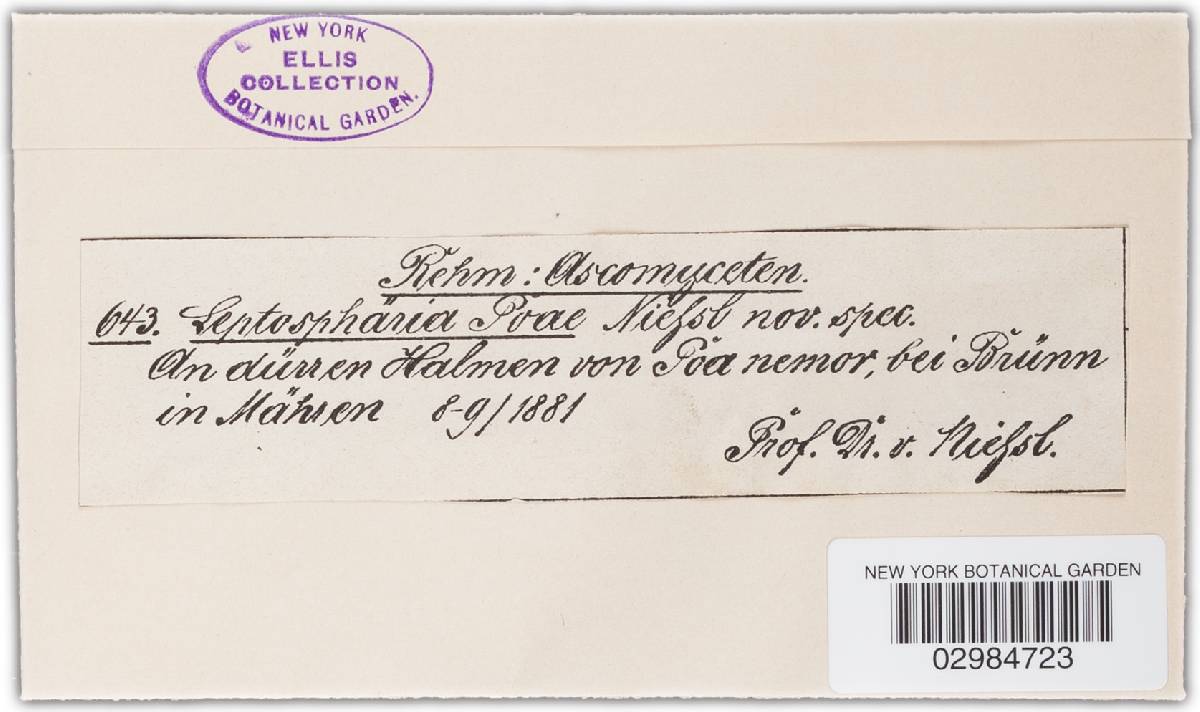 NEW YORK
ELLIS
COLLECTION
BOTANICAL GARDEN.
Rehm: Ascomyceten.
643. Leptosphäria Poae Nießl nov. spec.
An dürren Halmen von Poa nemor, bei Brünn
in Mähren 8-9/1881
Prof. Dr. v. Nießl.
NEW YORK BOTANICAL GARDEN
02984723